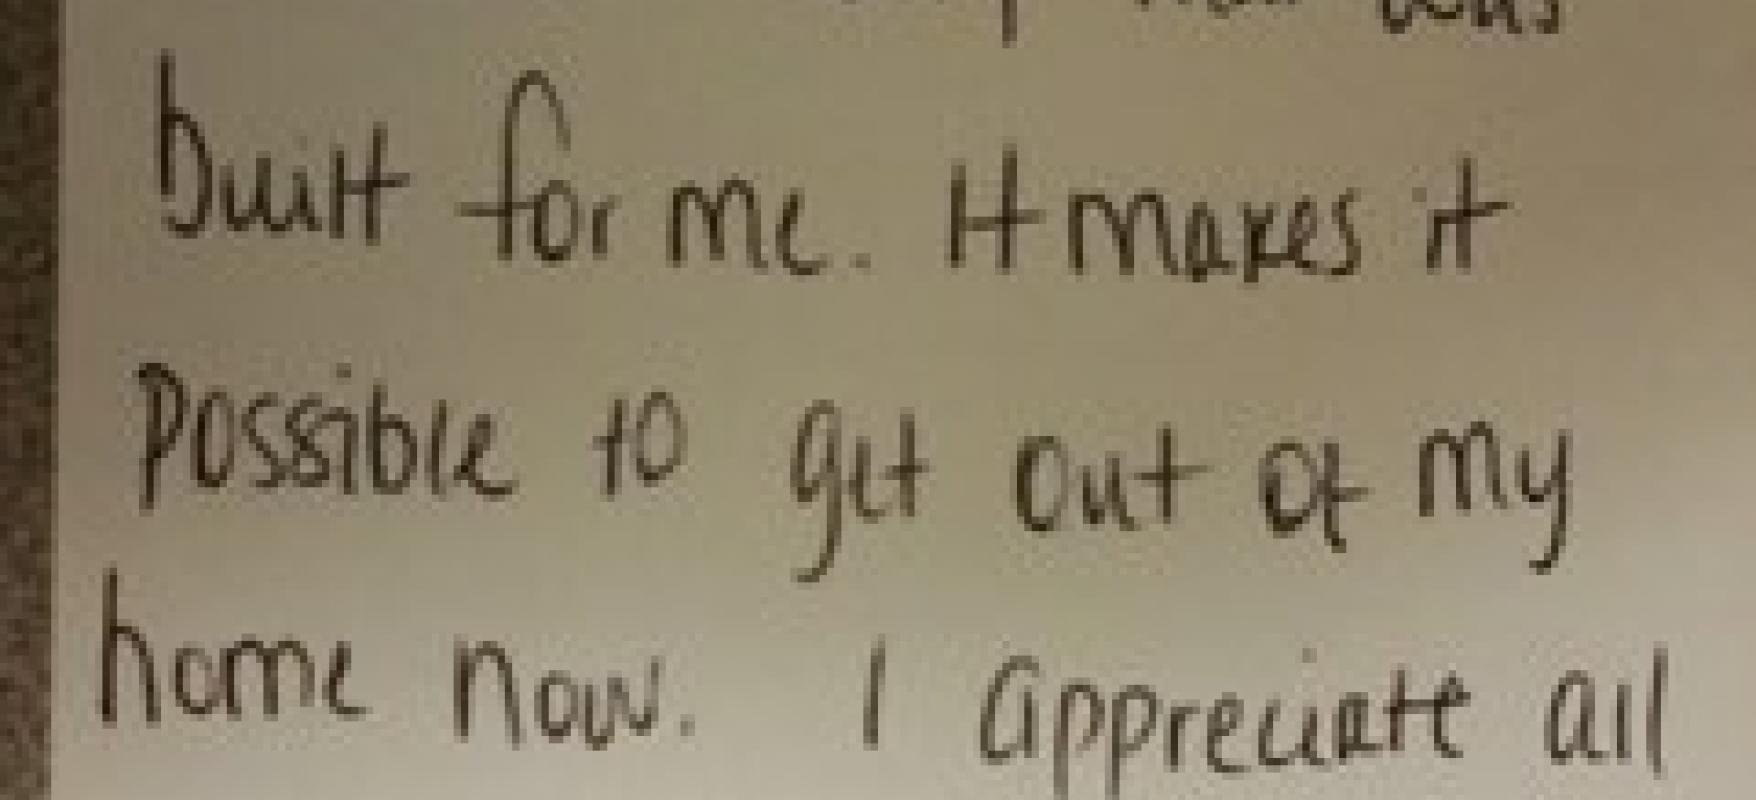 was
built for me. It makes it
possible to get out of my
home now. I appreciate all